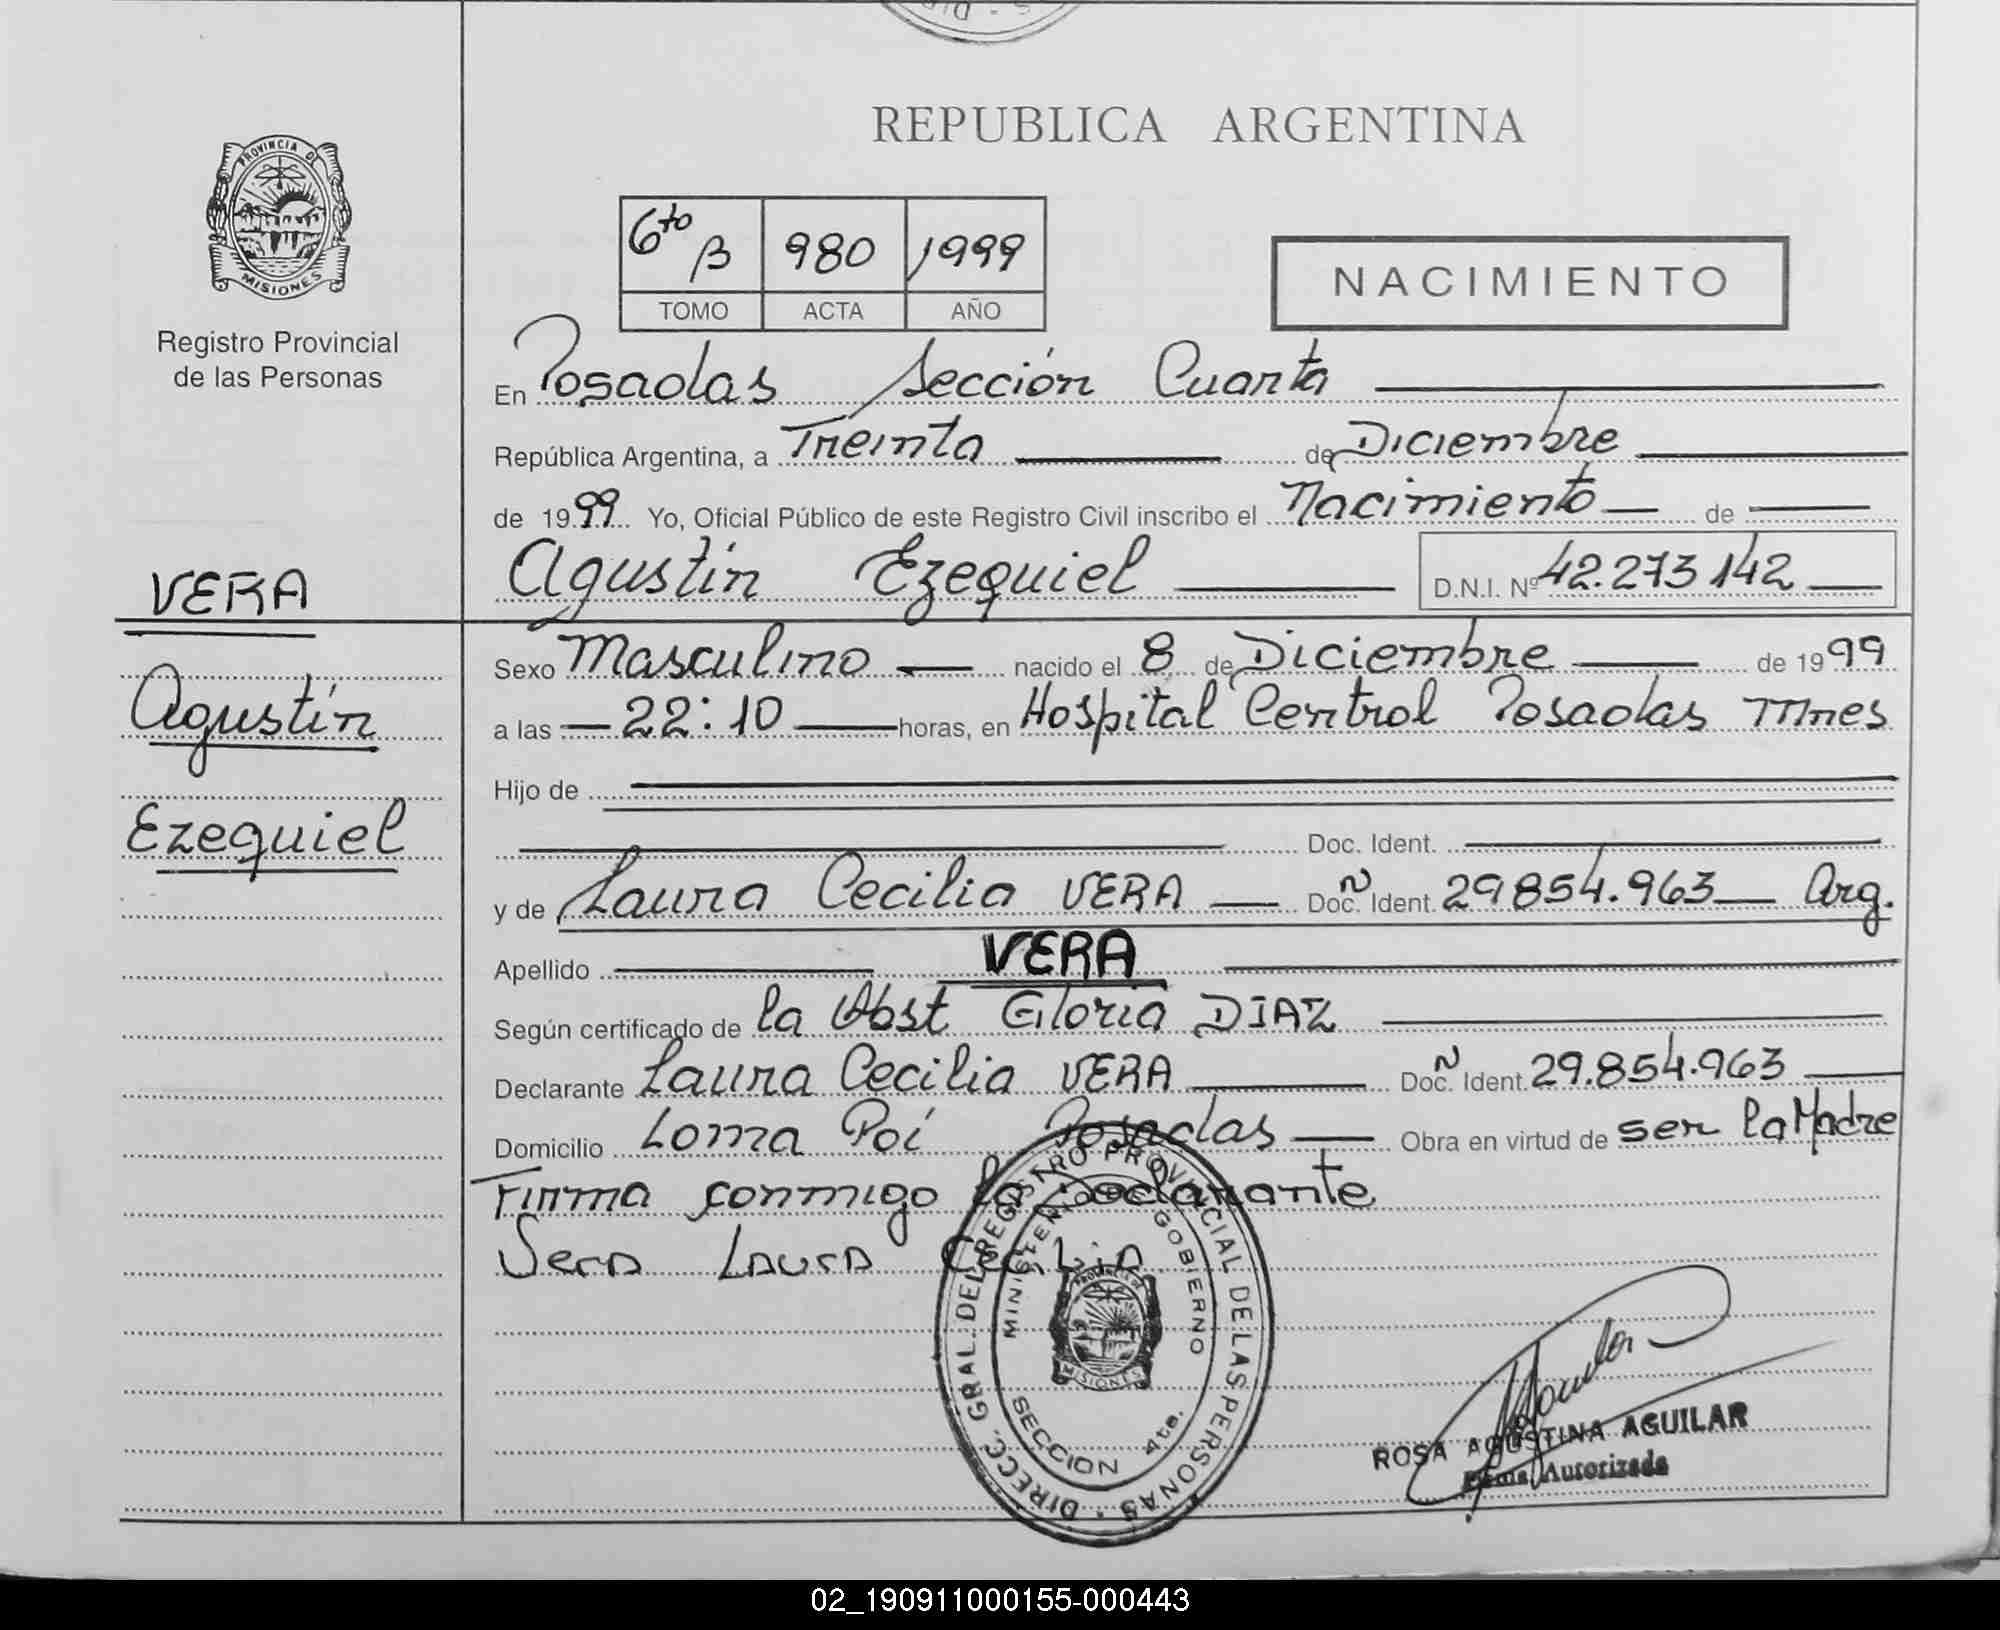 REPUBLICA ARGENTINA
PROVINCIA DE
MISIONES
Registro Provincial
de las Personas
6to B 980 1999
TOMO ACTA AÑO
NACIMIENTO
En Posadas Sección Cuarta
República Argentina, a Treinta de Diciembre
de 1999 Yo, Oficial Público de este Registro Civil inscribo el Nacimiento de
Agustín Ezequiel D.N.I. Nº 42.273.142
VERA
Agustín
Ezequiel
Sexo Masculino nacido el 8 de Diciembre de 1999
a las 22:10 horas, en Hospital Central Posadas Mnes
Hijo de
Doc. Ident.
y de Laura Cecilia VERA Doc. Ident. Nº 29.854.963 Arg.
Apellido VERA
Según certificado de la Obst Gloria DIAZ
Declarante Laura Cecilia VERA Doc. Ident. Nº 29.854.963
Domicilio Loma Poí Posadas Obra en virtud de ser la Madre
Firma conmigo la Declarante
Vera Laura Cecilia
DIRECC. GRAL. DEL REGISTRO PROVINCIAL DE LAS PERSONAS
MINISTERIO DE GOBIERNO
PROVINCIA DE
MISIONES
SECCION 4ta.
ROSA AGUSTINA AGUILAR
Firma Autorizada
02_190911000155-000443